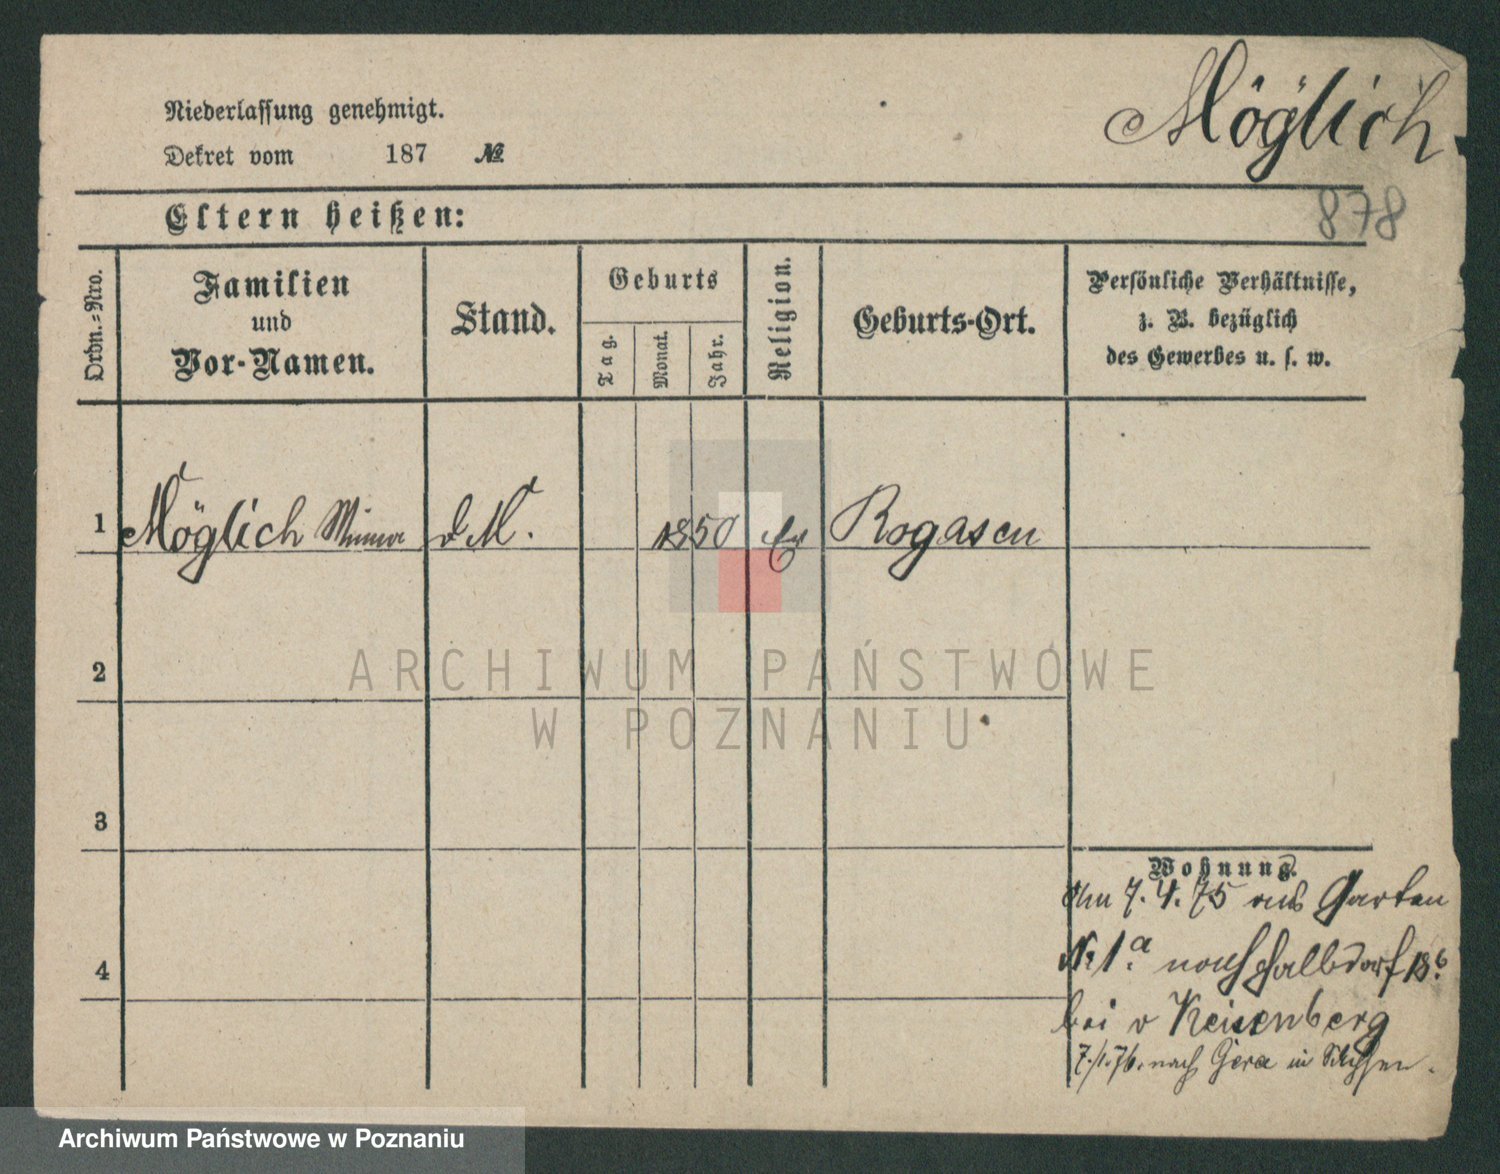 Möglich
Niederlassung genehmigt.
Dekret vom 187 №
878
Eltern heißen:
Ordn.-Nro.
Familien
und
Vor-Namen.
Stand.
Geburts
Tag.
Monat.
Jahr.
Religion.
Geburts-Ort.
Persönliche Verhältnisse,
z. B. bezüglich
des Gewerbes u. s. w.
1 Möglich Minna d M. 1850 Ev Rogasen
2
ARCHIWUM PAŃSTWOWE
W POZNANIU
3
Wohnung.
7. 4. 75 aus Garten
№ 1a. nach Halbdorf 18b.
bei v Reisenberg
4
7./1. 76. nach Gera in Sachsen.
Archiwum Państwowe w Poznaniu